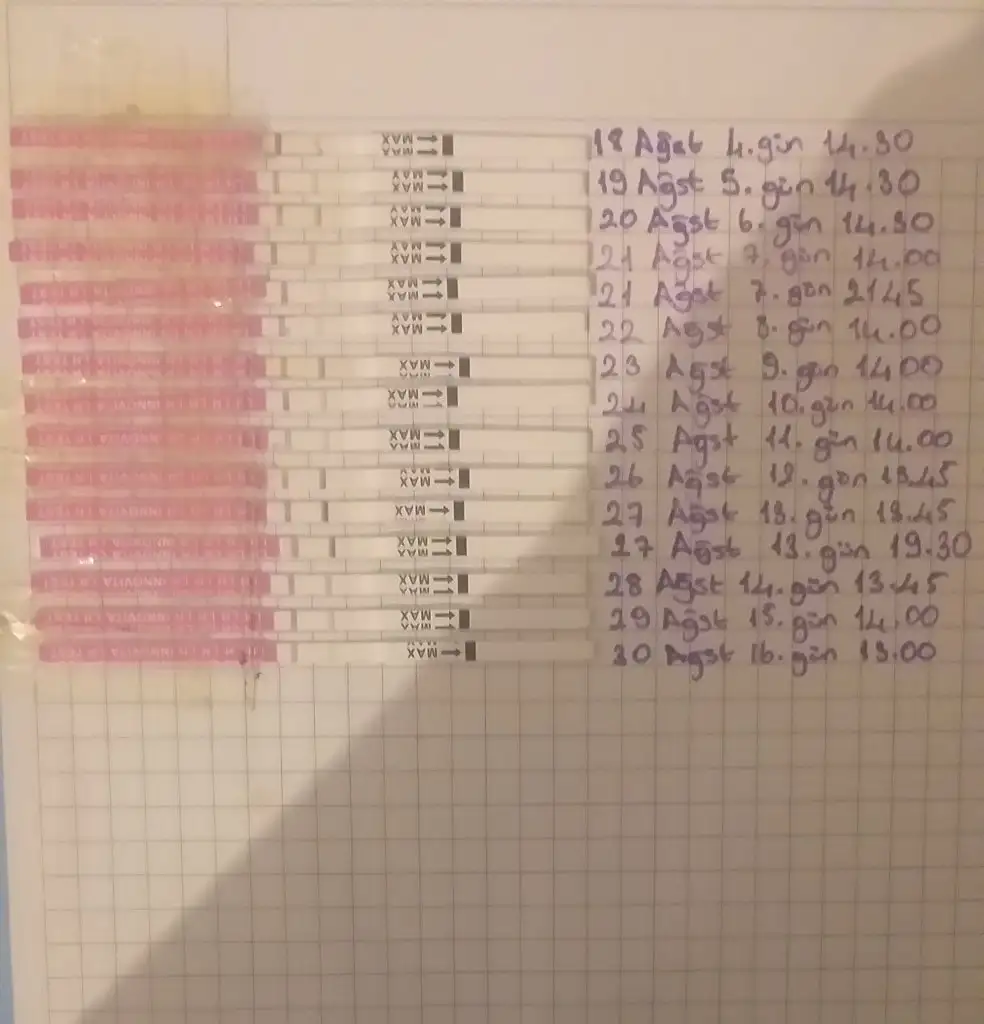 MAX 18 Ağst 4. gün 14.30
MAX 19 Ağst 5. gün 14.30
MAX 20 Ağst 6. gün 14.30
MAX 21 Ağst 7. gün 14.00
MAX 21 Ağst 7. gün 21.45
MAX 22 Ağst 8. gün 14.00
MAX 23 Ağst 9. gün 14.00
MAX 24 Ağst 10. gün 14.00
INNOVITA LH TEST MAX 25 Ağst 11. gün 14.00
MAX 26 Ağst 12. gün 13.45
MAX 27 Ağst 13. gün 13.45
MAX 27 Ağst 13. gün 19.30
LH INNOVITA LH TEST MAX 28 Ağst 14. gün 13.45
MAX 29 Ağst 15. gün 14.00
LH INNOVITA LH TEST MAX 30 Ağst 16. gün 13.00